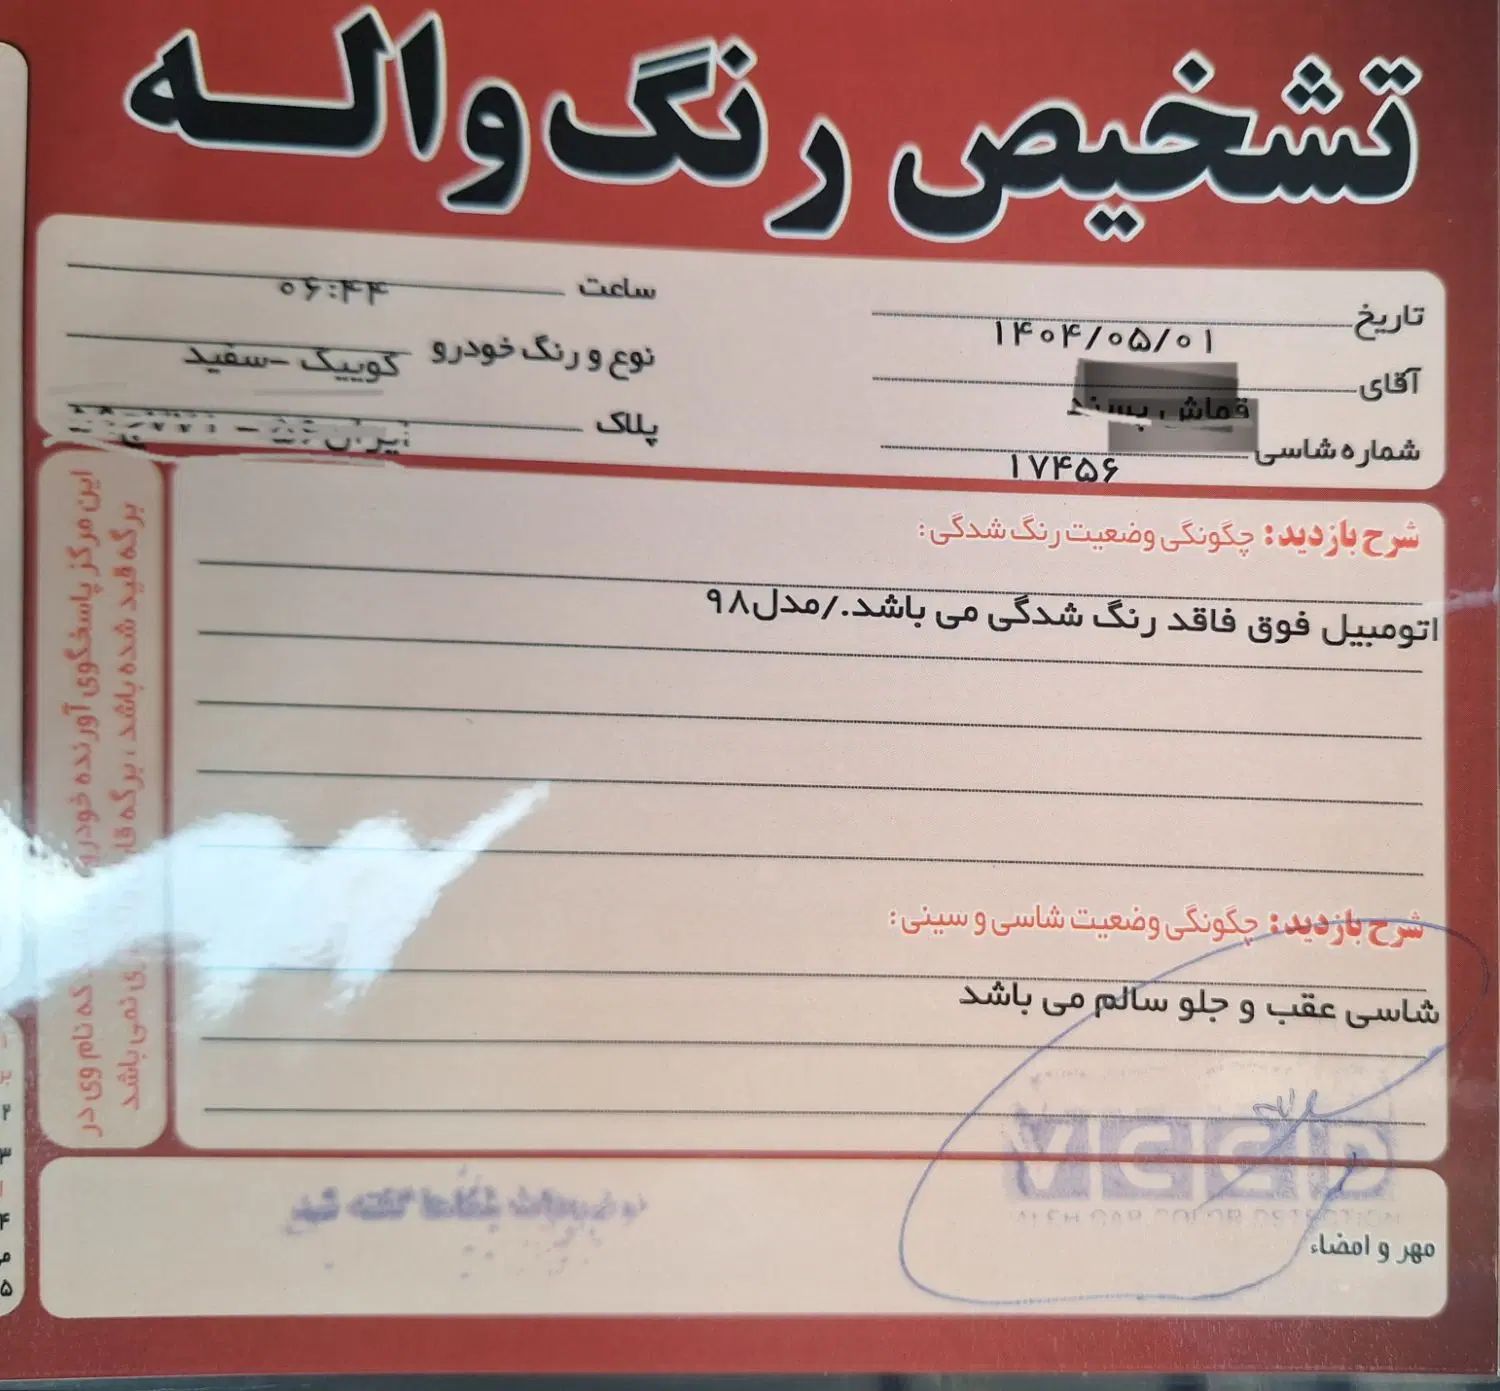 تشخیص رنگ واله
تاریخ ۱۴۰۴/۰۵/۰۱
ساعت ۰۶:۴۴
آقای قماش پسند
نوع و رنگ خودرو کوییک -سفید
شماره شاسی ۱۷۴۵۶
پلاک ایران
شرح بازدید: چگونگی وضعیت رنگ شدگی:
اتومبیل فوق فاقد رنگ شدگی می باشد./مدل۹۸
شرح بازدید: چگونگی وضعیت شاسی و سینی:
شاسی عقب و جلو سالم می باشد
VCCD
مهر و امضاء
این مرکز پاسخگوی آورنده خودرو که نام وی در
برگه قید شده باشد ، برگه نمی باشد
۲
۳
۴
۵